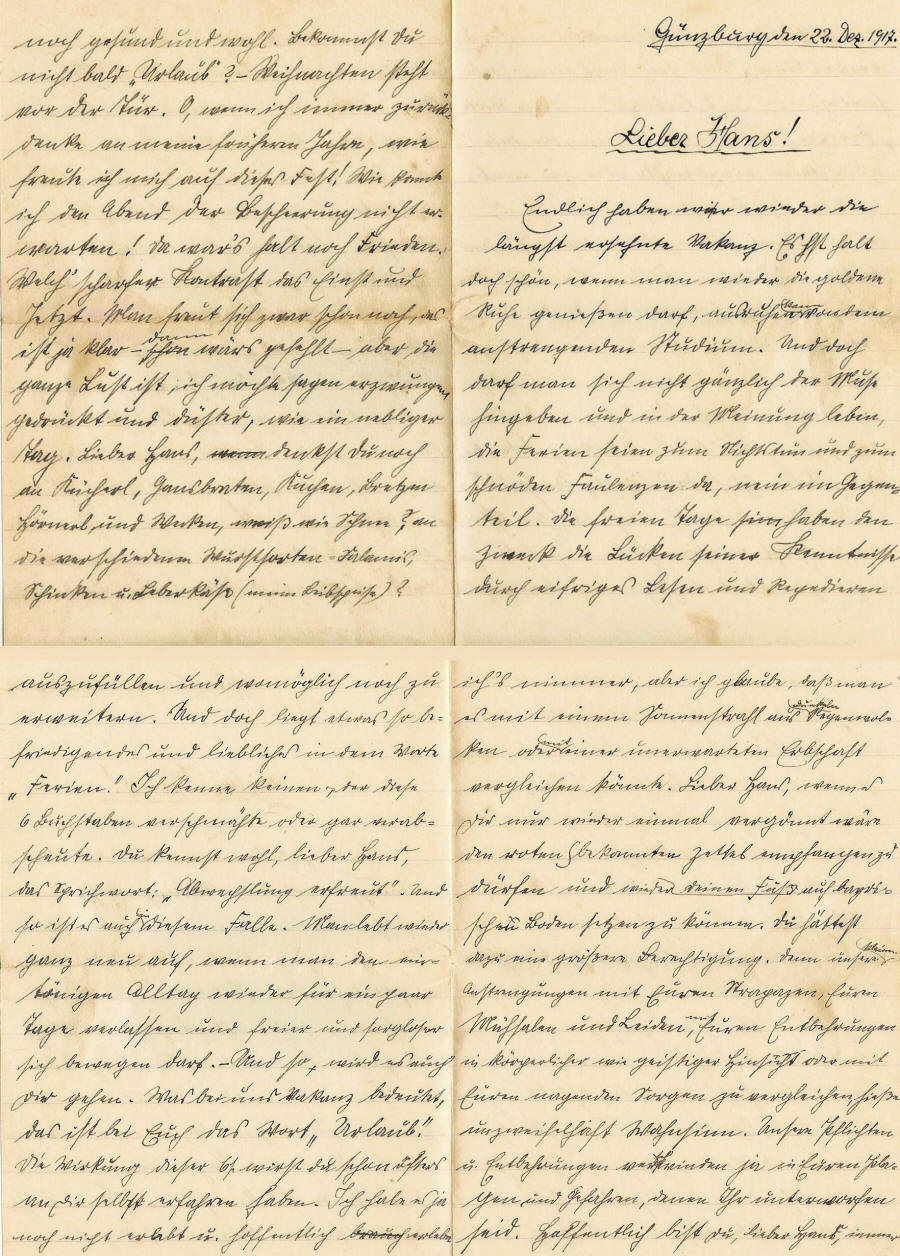 Günzburg den 22. Dez. 1917.
Lieber Hans!
Endlich haben wir wieder die
längst ersehnte Vakanz. Es ist halt
doch schön, wenn man wieder die goldene
Ruhe genießen darf, ausruhen kann von dem
anstrengenden Studium. Und doch
darf man sich nicht gänzlich der Muse
hingeben und in der Meinung leben,
die Ferien seien zum Nichtstun und zum
schnöden Faulenzen da, nein im Gegen-
teil. Die freien Tage haben den
Zweck die Lücken seiner Kenntnisse
durch eifriges Lesen und Repedieren
auszufüllen und womöglich noch zu
erweitern. Und doch liegt etwas so be-
friedigendes und liebliches in dem Worte
„Ferien!" Ich kenne keinen, der diese
6 Buchstaben verschmähte oder gar verab-
scheute. Du kennst wohl, lieber Hans,
das Sprichwort: „Abwechslung erfreut". Und
so ist es auch in diesem Falle. Man lebt wieder
ganz neu auf, wenn man den ein-
tönigen Alltag wieder für ein paar
Tage verlassen und freier und sorgloser
sich bewegen darf. – Und so, wird es auch
Dir gehen. Was bei uns Vakanz bedeutet,
das ist bei Euch das Wort „Urlaub".
Die Wirkung dieser 6 wirst du schon öfters
an Dir selbst erfahren haben. Ich habe es ja
noch nicht erlebt u. hoffentlich brauch erlebe
ich's nimmer, aber ich glaube, daß man
es mit einem Sonnenstrahl aus dunkeln Regenwol-
ken oder mit einer unerwarteten Erbschaft
vergleichen könnte. Lieber Hans, wenn es
Dir nur wieder einmal vergönnt wäre
den roten bekannten Zettel empfangen zu
dürfen und wieder deinen Fuß auf bayri-
schen Boden setzen zu können. Du hättest
dazu eine größere Berechtigung. Denn unsere kleinen
Anstrengungen mit Euren Strapazen, Euren
Mühsalen und Leiden, mit Euren Entbehrungen
in körperlicher wie geistiger Hinsicht oder mit
Euren nagenden Sorgen zu vergleichen, hieße
unzweifelhaft Wahnsinn. Unsere Pflichten
u. Entbehrungen verschwinden ja in Euren Pla-
gen und Gefahren, denen Ihr unterworfen
seid. Hoffentlich bist Du, lieber Hans, immer
noch gesund und wohl. Bekommst Du
nicht bald „Urlaub"? – Weihnachten steht
vor der Tür. O, wenn ich immer zurück-
denke an meine früheren Jahre, wie
freute ich mich auf dieses Fest! Wie konnte
ich den Abend der Bescheerung nicht er-
warten! Da war's halt noch Frieden.
Welch' scharfer Kontrast das Einst und
Jetzt. Man freut sich zwar schon noch, das
ist ja klar – schon dann wärs gefehlt – aber die
ganze Lust ist, ich möchte sagen erzwungen
gedrückt und düster, wie ein nebliger
Tag. Lieber Hans, wenn denkst Du noch
an Kücherl, Gansbraten, Kuchen, Bretzen
Hörnerl, und Wecken, weiß wie Schnee?, an
die verschiedenen Wurstsorten – Salamis,
Schinken u. Leberkäse (meine Leibspeise)?